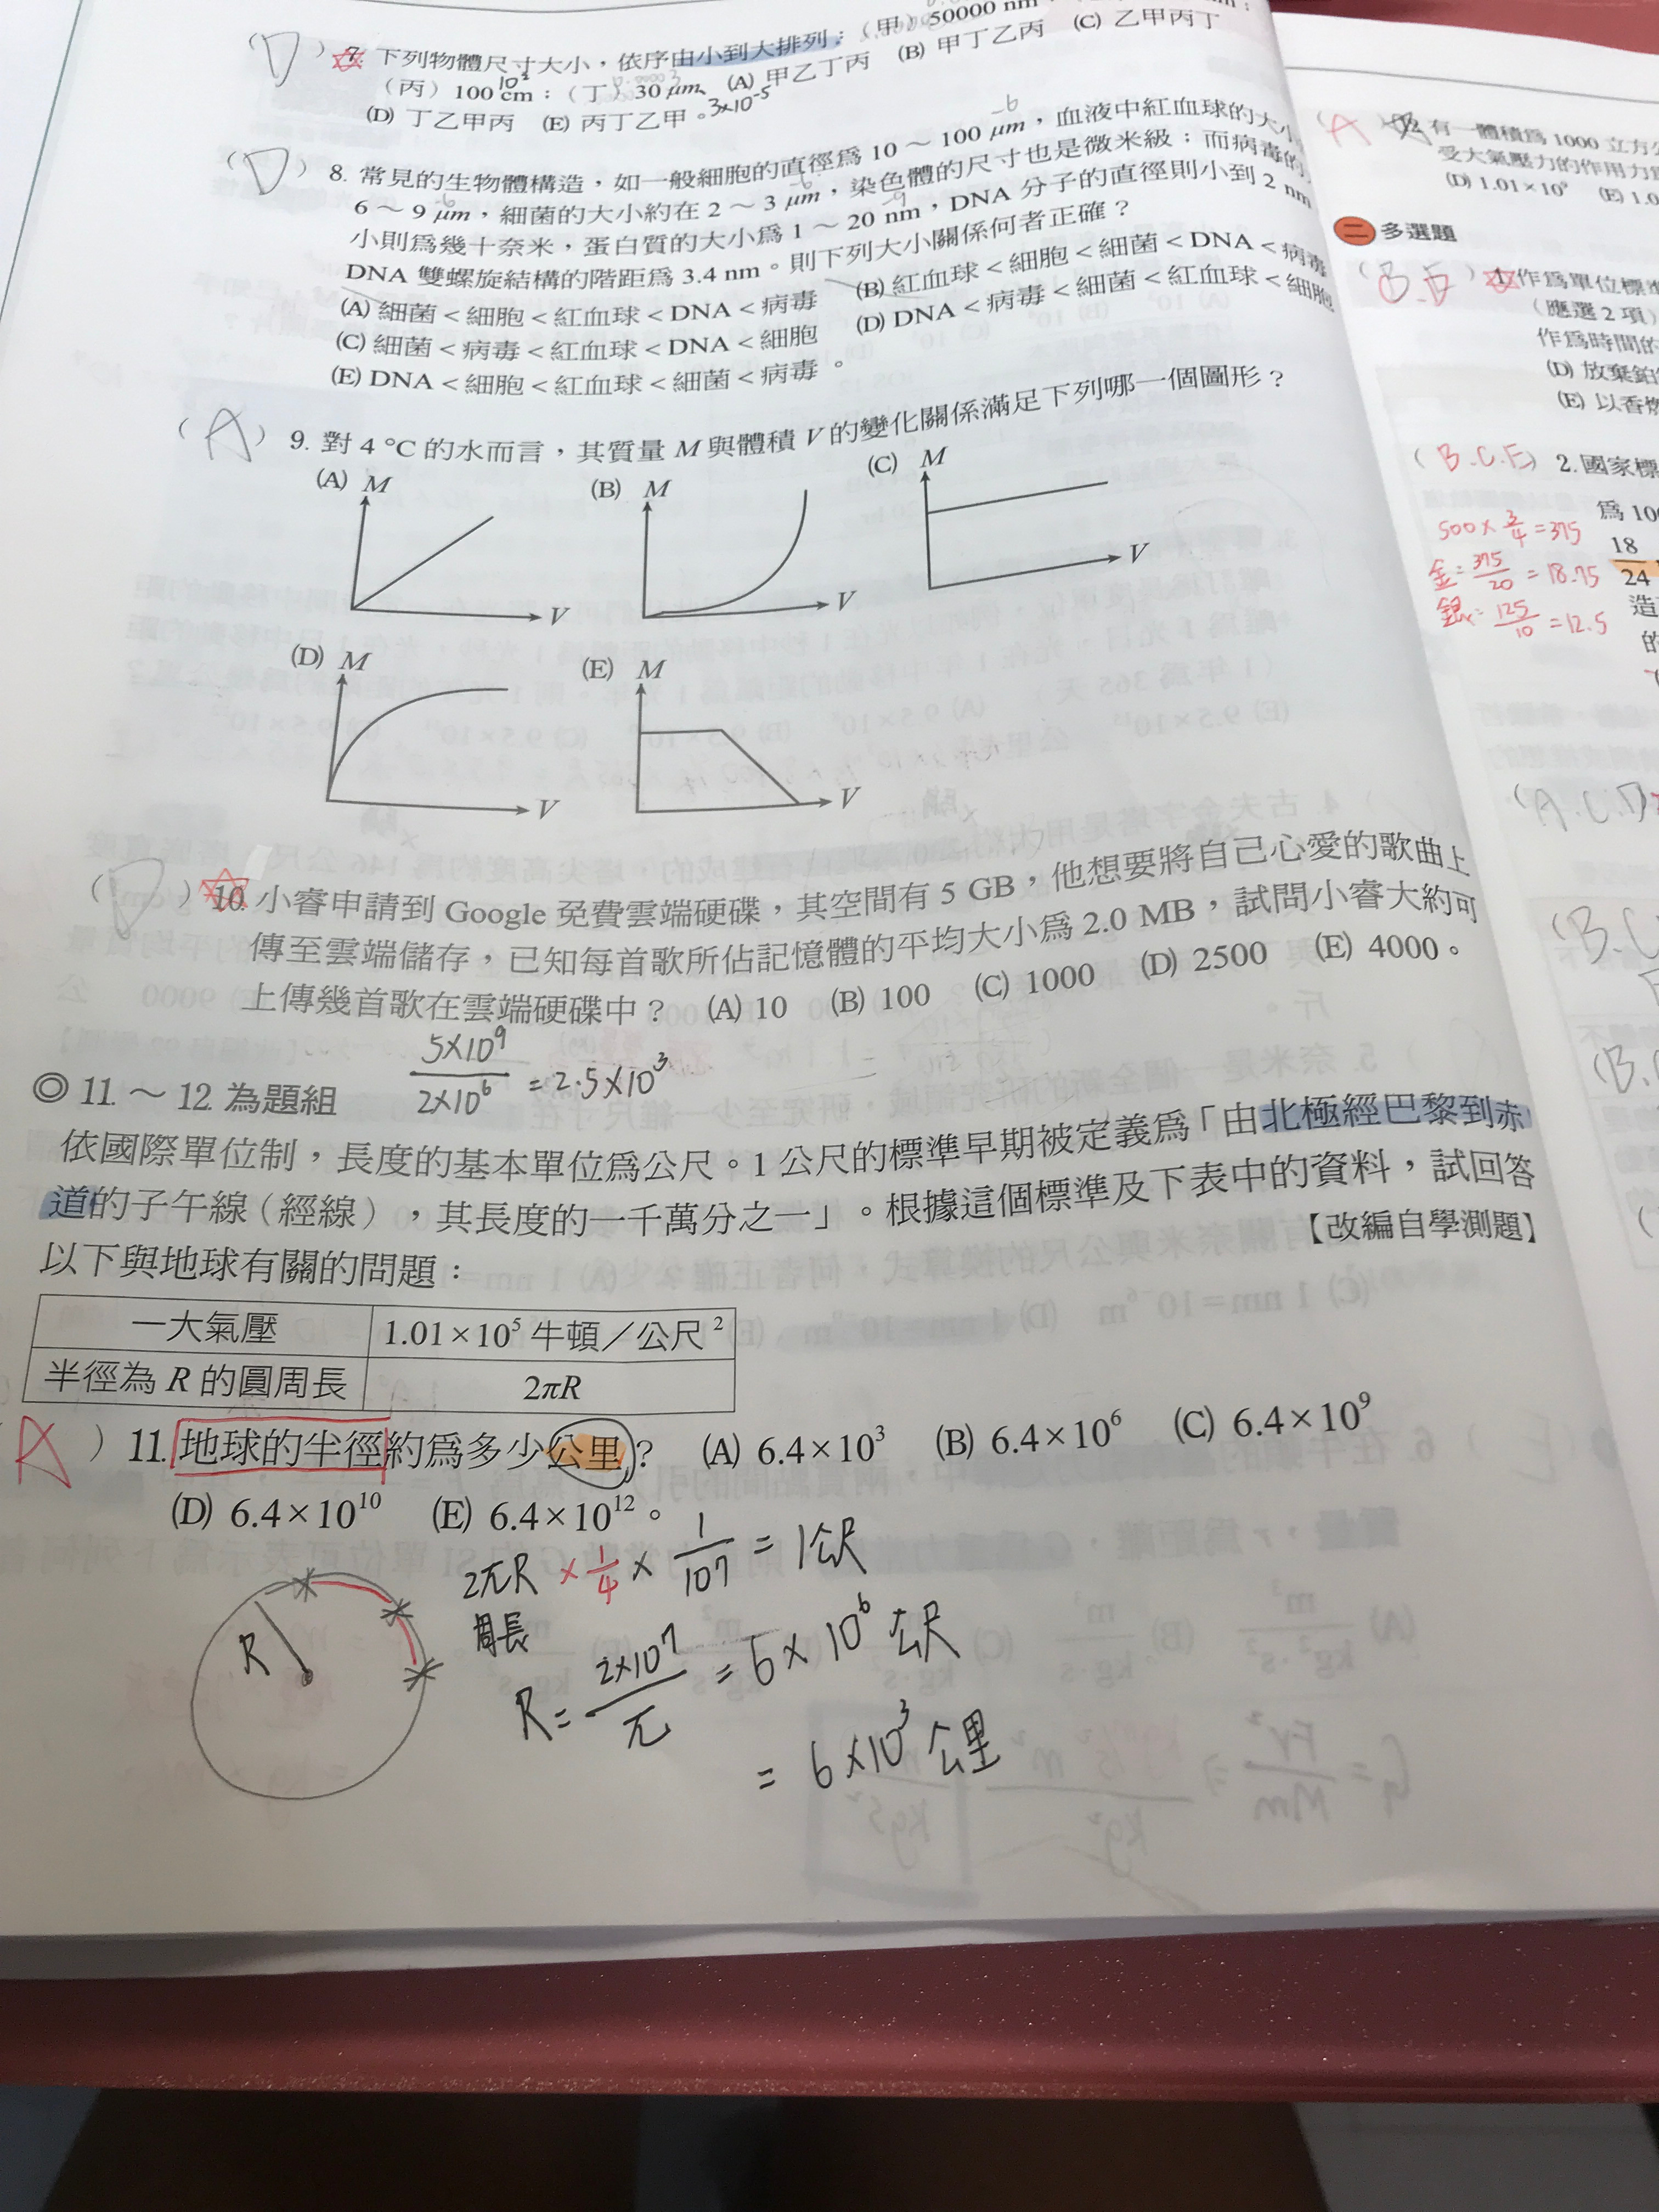 (D) 7. 下列物體尺寸大小，依序由小到大排列：（甲）50000 nm
（丙）100 cm；（丁）30 μm。 (A) 甲乙丁丙 (B) 甲丁乙丙 (C) 乙甲丙丁
10²
(D) 丁乙甲丙 (E) 丙丁乙甲。
3×10⁻⁵
(D) 8. 常見的生物體構造，如一般細胞的直徑為 10～100 μm，血液中紅血球的大小
6～9 μm，細菌的大小約在 2～3 μm，染色體的尺寸也是微米級；而病毒的
小則為幾十奈米，蛋白質的大小為 1～20 nm，DNA 分子的直徑則小到 2 nm
DNA 雙螺旋結構的階距為 3.4 nm。則下列大小關係何者正確？
(A) 細菌＜細胞＜紅血球＜DNA＜病毒 (B) 紅血球＜細胞＜細菌＜DNA＜病毒
(C) 細菌＜病毒＜紅血球＜DNA＜細胞 (D) DNA＜病毒＜細菌＜紅血球＜細胞
(E) DNA＜細胞＜紅血球＜細菌＜病毒。
(A) 9. 對 4 ℃ 的水而言，其質量 M 與體積 V 的變化關係滿足下列哪一個圖形？
(A) M V (B) M V (C) M V
(D) M V (E) M V
(D) 10. 小睿申請到 Google 免費雲端硬碟，其空間有 5 GB，他想要將自己心愛的歌曲上
傳至雲端儲存，已知每首歌所佔記憶體的平均大小為 2.0 MB，試問小睿大約可
上傳幾首歌在雲端硬碟中？ (A) 10 (B) 100 (C) 1000 (D) 2500 (E) 4000。
5×10⁹/2×10⁶ = 2.5×10³
◎ 11. ～ 12. 為題組
依國際單位制，長度的基本單位為公尺。1 公尺的標準早期被定義為「由北極經巴黎到赤
道的子午線（經線），其長度的一千萬分之一」。根據這個標準及下表中的資料，試回答
以下與地球有關的問題：
【改編自學測題】
一大氣壓 1.01×10⁵ 牛頓／公尺²
半徑為 R 的圓周長 2πR
(A) 11. 地球的半徑約為多少公里？ (A) 6.4×10³ (B) 6.4×10⁶ (C) 6.4×10⁹
(D) 6.4×10¹⁰ (E) 6.4×10¹²。
2πR × 1/4 × 1/107 = 1公尺
周長
R
R = 2×10⁷/π = 6×10⁶ 公尺
= 6×10³ 公里
(A) 12. 有一體積為 1000 立方公
受大氣壓力的作用力
(D) 1.01×10⁹ (E) 1.0
二 多選題
(B.E) 1. 作為單位標準
（應選 2 項）
作為時間的
(D) 放棄鉑
(E) 以香
(B.C.E) 2. 國家標
為 100
500×3/4=375
金=375/20=18.75
銀=125/10=12.5
18/24
造
的
(A.C.D)